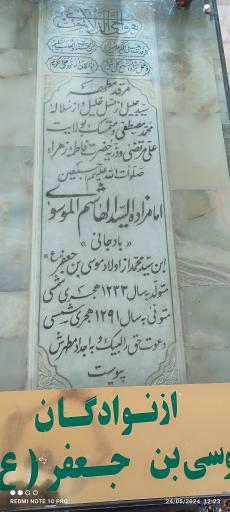 هو الحی الذی لا یموت
مرقد مطهر
سید جلیل از نسل خلیل و از سلاله
محمد مصطفی و متمسک بولایت
علی مرتضی و ذریه حضرت فاطمه زهراء
صلوات الله علیهم اجمعین
امامزاده السید هاشم الموسوی
« بادجانی »
ابن سید محمد از اولاد موسی بن جعفر «ع»
متولد بسال ۱۲۳۳ هجری شمسی
متوفی بسال ۱۲۹۱ هجری شمسی
دعوت حق را لبیک و به اجداد مطهرش
پیوست
از نوادگان
وسی بن جعفر (ع
REDMI NOTE 10 PRO
24/05/2024 12:23